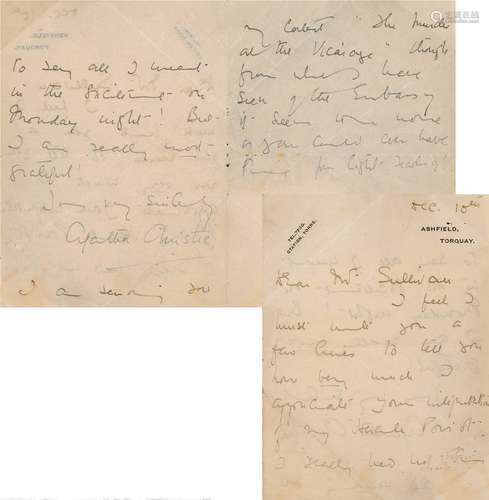 DEC. 10th
TEL: 7230.
STATION, TORRE.
ASHFIELD,
TORQUAY.
Dear Mr Sullivan
I feel I
must write you a
few lines to tell you
how very much I
appreciate your interpretation
of my Hercule Poirot.
I really had not time
ASHFIELD,
TORQUAY.
to say all I meant
in the excitement on
Monday night! But
I am really most
grateful!
Yours very sincerely
Agatha Christie
I am sending you
my latest "The Murder
at the Vicarage" though
from what I have
seen of the Embassy
it seems to me none
of you could ever have
time for light reading!